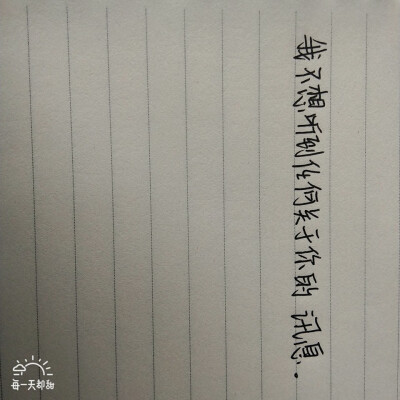 我不想听到任何关于你的讯息.
每一天都甜